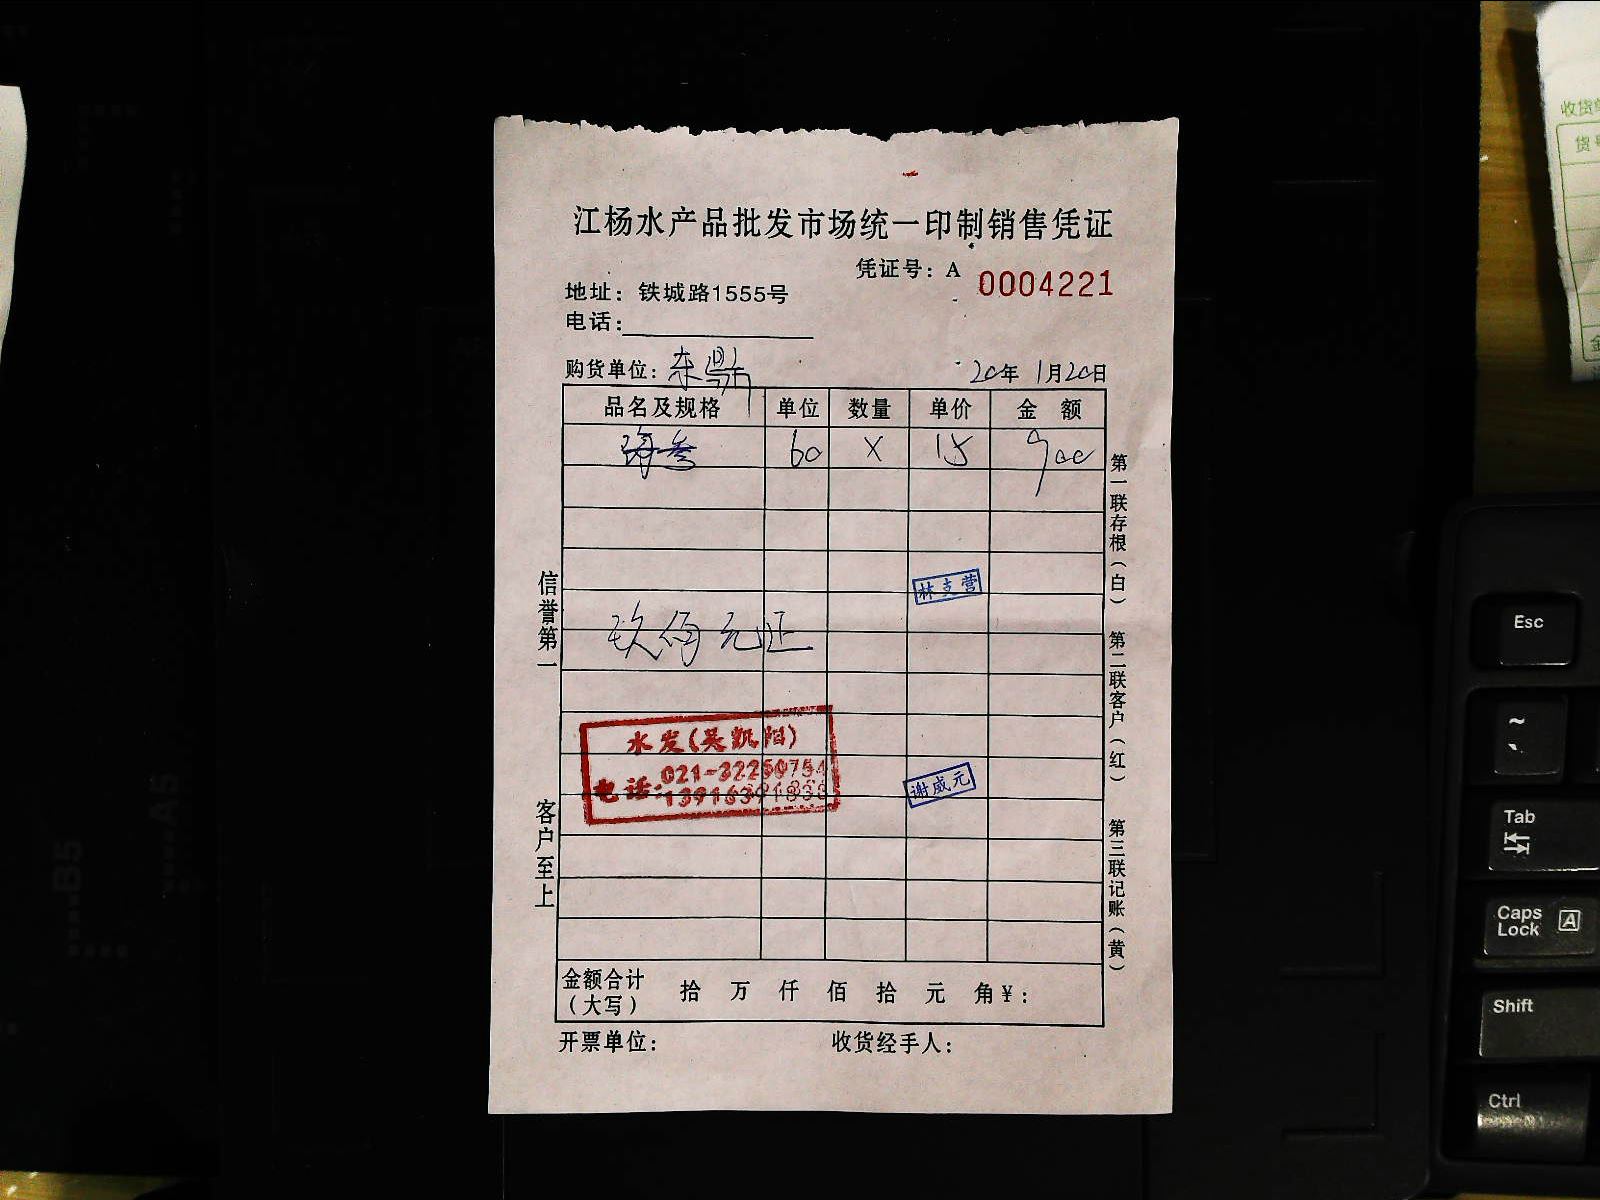 江杨水产品批发市场统一印制销售凭证
凭证号：A 0004221
地址：铁城路1555号
电话：
购货单位：东鼎 20年1月20日
品名及规格 单位 数量 单价 金额
海参 60 X 15 900
玖佰元正
林支营
水发(吴凯阳)
电话：021-32250754
13916391838
谢成元
金额合计（大写） 拾 万 仟 佰 拾 元 角￥：
开票单位： 收货经手人：
信誉第一
客户至上
第一联存根（白）
第二联客户（红）
第三联记账（黄）
收货单
货号
Esc
~
`
Tab
Caps Lock A
Shift
Ctrl
B5
A5